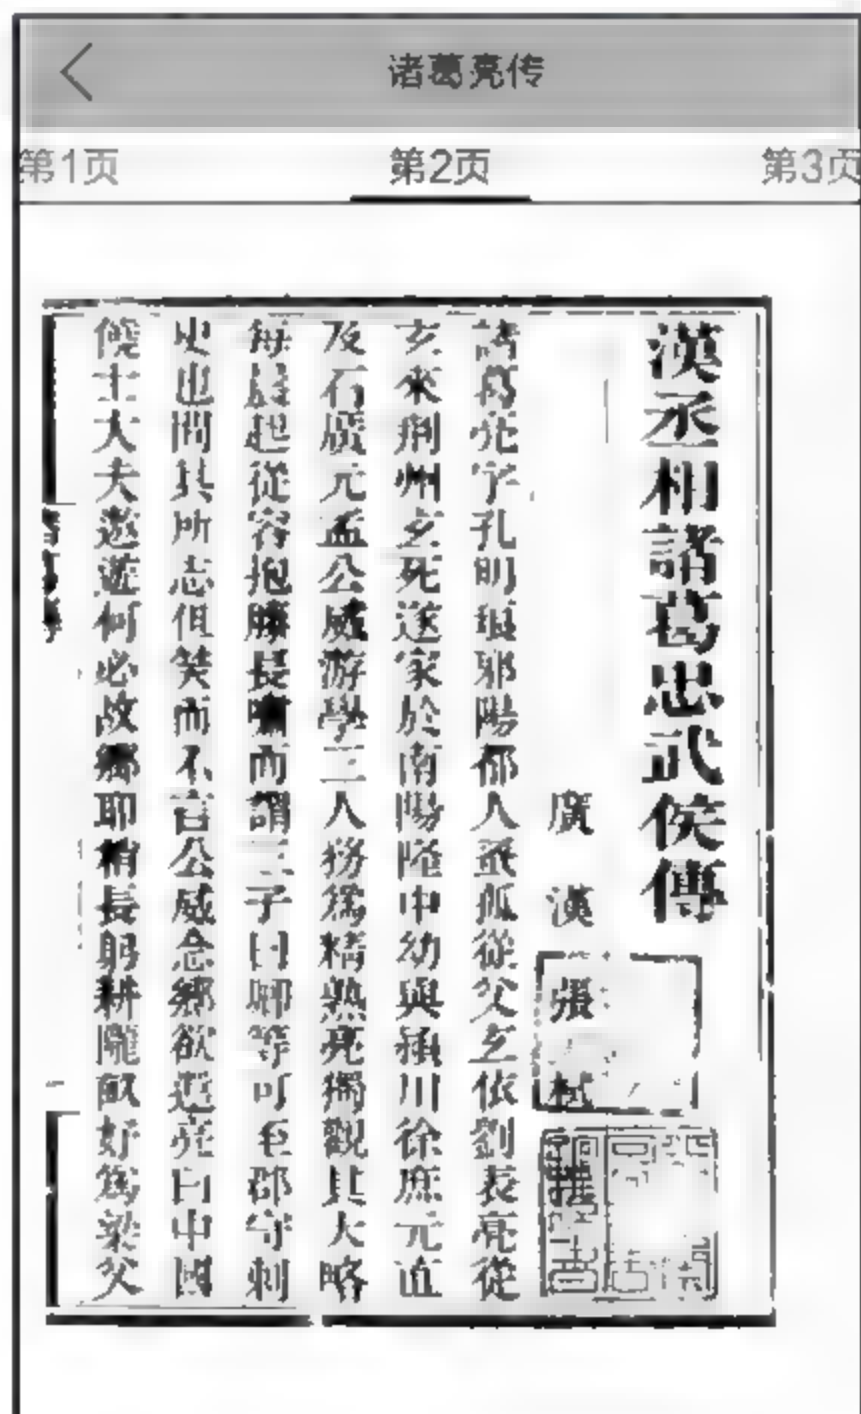 诸葛亮传
第1页
第2页
第3页
漢丞相諸葛忠武侯傳
廣漢張栻撰
諸葛亮字孔明琅邪陽都人蚤孤從父玄依劉表亮從
玄來荆州玄死遂家於南陽隆中幼與潁川徐庶元直
及石廣元孟公威游學三人務爲精熟亮獨觀其大略
每晨起從容抱膝長嘯而謂三子曰卿等可至郡守刺
史也問其所志但笑而不言公威念鄉欲還亮曰中國
饒士大夫遨遊何必故鄉耶稍長躬耕隴畝好爲梁父